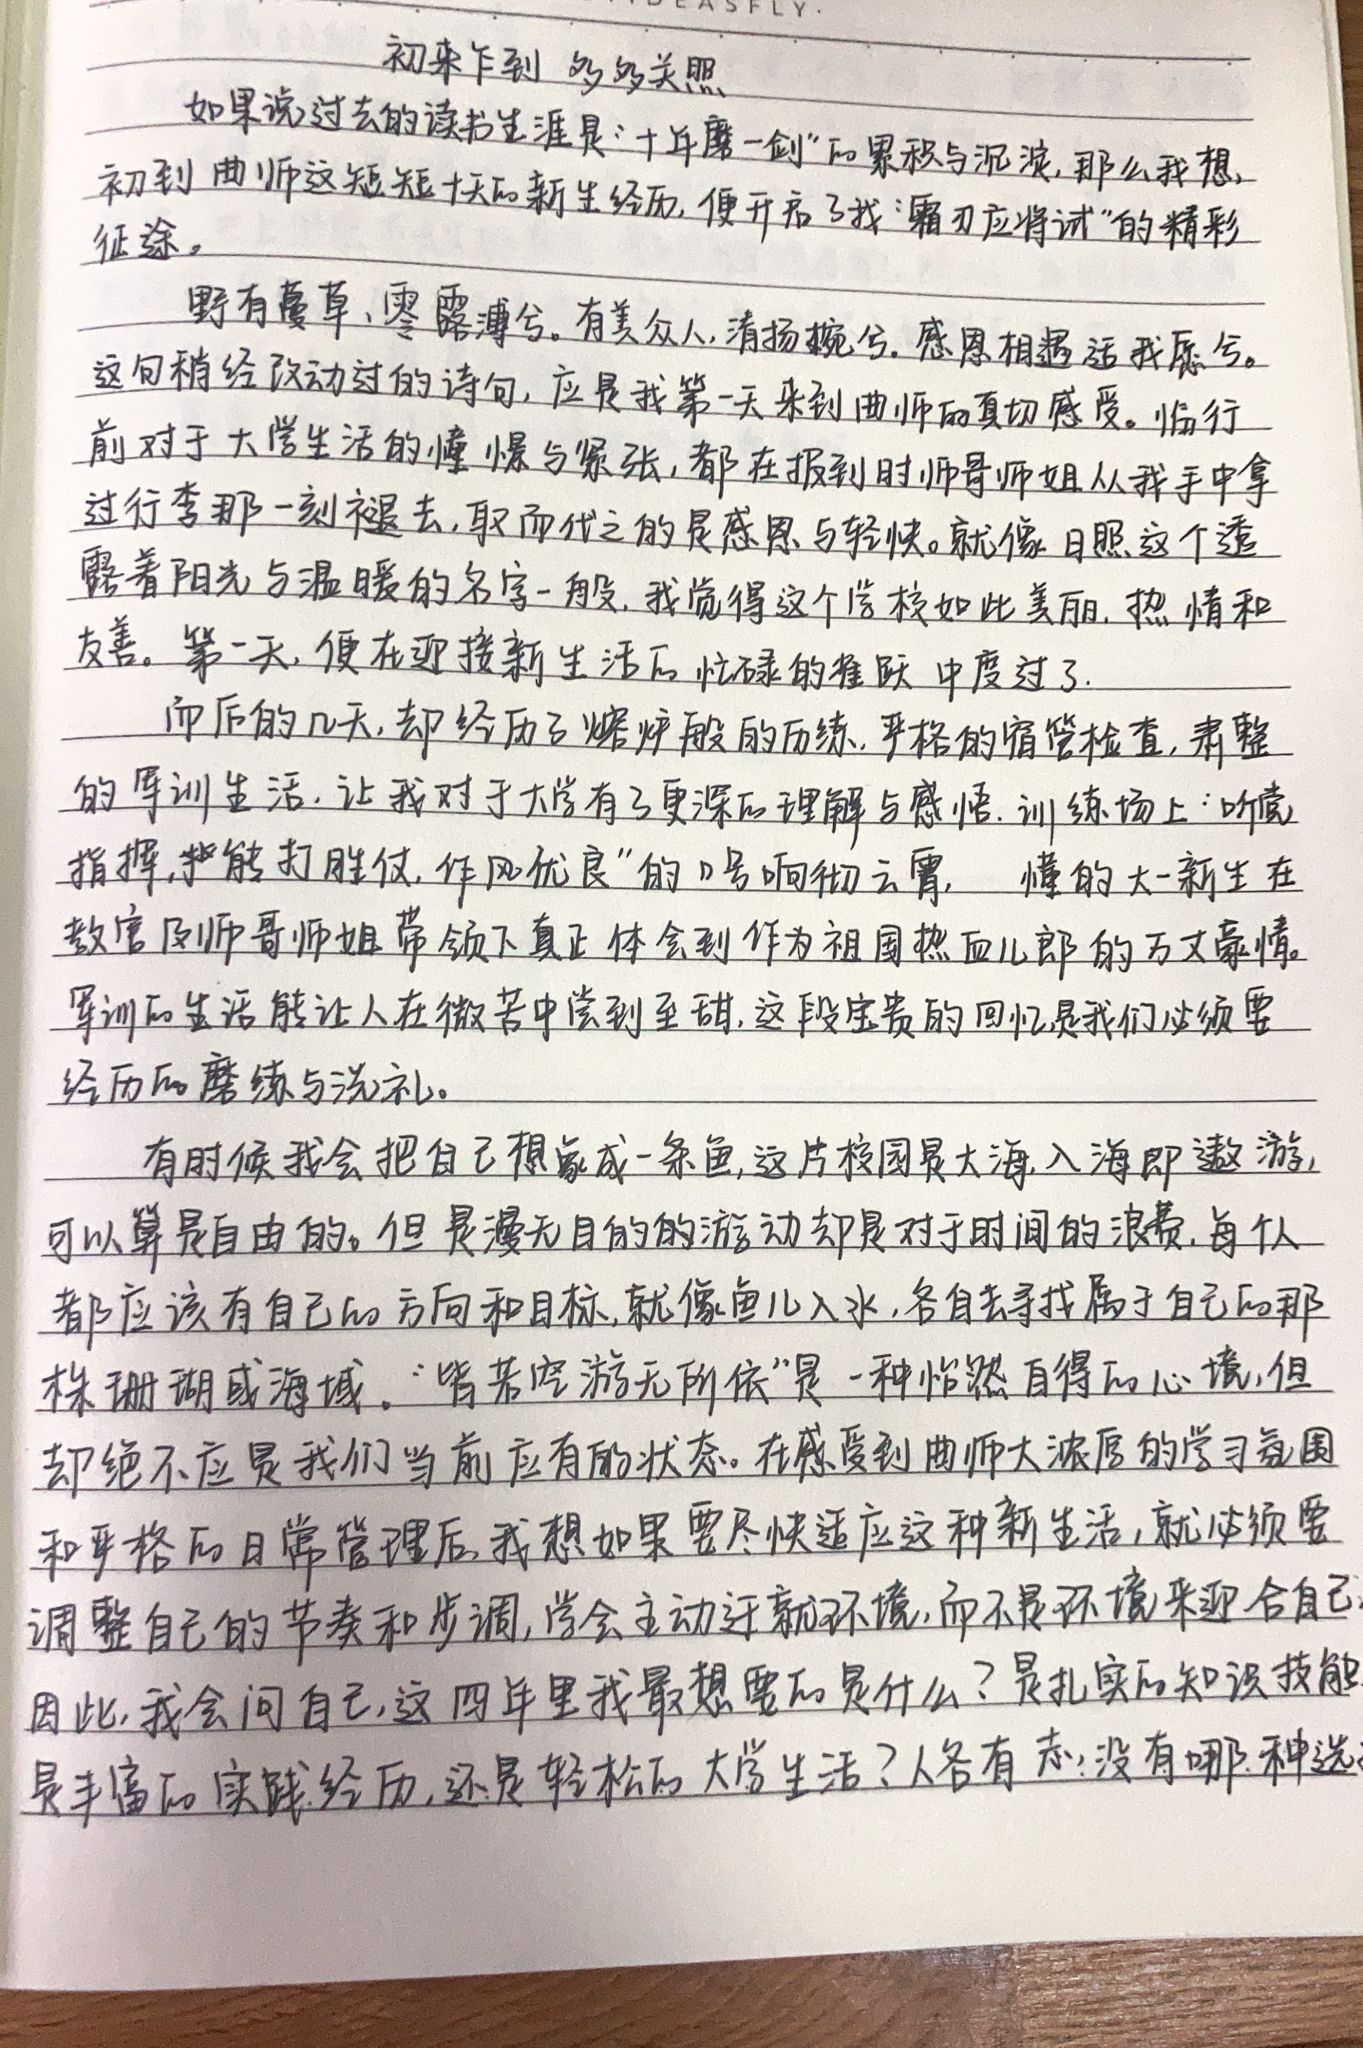 IDEASFLY.
初来乍到 多多关照
如果说过去的读书生涯是“十年磨一剑”的累积与沉淀，那么我想，
初到曲师这短短十天的新生经历，便开启了我“霜刃应将试”的精彩
征途。
野有蔓草、零露溥兮。有美众人，清扬婉兮。感恩相遇适我愿兮。
这句稍经改动过的诗句，应是我第一天来到曲师的真切感受。临行
前对于大学生活的憧憬与紧张，都在报到时师哥师姐从我手中拿
过行李那一刻褪去，取而代之的是感恩与轻快。就像日照这个透
露着阳光与温暖的名字一般，我觉得这个学校如此美丽、热情和
友善。第一天，便在迎接新生活的忙碌的雀跃中度过了.
而后的几天，却经历了熔炉般的历练，严格的宿管检查，肃整
的军训生活，让我对于大学有了更深的理解与感悟.训练场上“听党
指挥，能打胜仗，作风优良”的口号响彻云霄， 懂的大一新生在
教官及师哥师姐带领下真正体会到作为祖国热血儿郎的万丈豪情。
军训的生活能让人在微苦中尝到至甜，这段宝贵的回忆是我们必须要
经历的磨练与洗礼。
有时候我会把自己想象成一条鱼，这片校园是大海，入海即遨游，
可以算是自由的。但是漫无目的的游动却是对于时间的浪费，每个人
都应该有自己的方向和目标，就像鱼儿入水，各自去寻找属于自己的那
株珊瑚或海域。“皆若空游无所依”是一种怡然自得的心境，但
却绝不应是我们当前应有的状态。在感受到曲师大浓厚的学习氛围
和严格的日常管理后，我想如果要尽快适应这种新生活，就必须要
调整自己的节奏和步调，学会主动迁就环境，而不是环境来迎合自己.
因此，我会问自己，这四年里我最想要的是什么？是扎实的知识技能，
是丰富的实践经历，还是轻松的大学生活？人各有志，没有哪种选